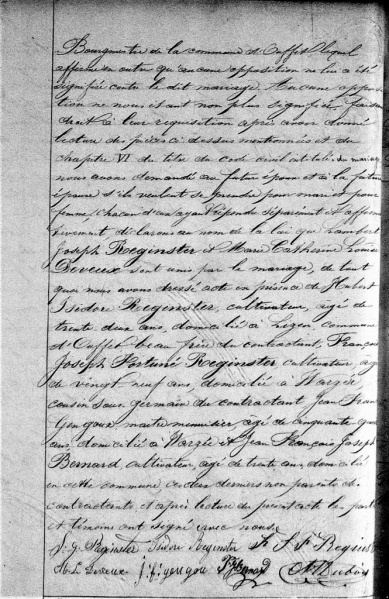 Bourgmestre de la commune d'Ouffet, lequel
affirme en outre qu'aucune opposition ne lui a été
signifiée contre le dit mariage. Aucune oppo-
sition ne nous étant non plus signifiée, faisant
droit à leur requisition après avoir donné
lecture des pièces ci dessus mentionnées et du
chapitre VI du titre du code civil intitulé du mariage
nous avons demandé au futur époux et à la future
épouse s'ils veulent se prendre pour mari et pour
femme, chacun d'eux ayant répondu séparément et affirma-
tivement déclarons au nom de la loi que Lambert
Joseph Reginster et Marie Catherine Louise
Deveux sont unis par le mariage, de tout
quoi nous avons dressé acte en présence de Hubert
Isidore Reginster, cultivateur, agé de
trente deux ans, domicilié à Lizen, commune
d'Ouffet beau frère du contractant, François
Joseph Fortuné Reginster, cultivateur, agé
de vingt neuf ans, domicilié à Warzée
cousin sous germain du contractant, Jean Franç
Gengoux, maitre menuisier, agé de cinquante quatre
ans, domicilié à Warzée et Jean François Joseph
Bernard, cultivateur, agé de trente ans, domicilié
en cette commune ces deux derniers non parents des
contractants, et après lecture du présent acte les part
et témoins ont signé avec nous.
J. J. Reginster Isidore Reginster F. J. F. Reginst
M. L. Deveux J. f. gengou Bernard